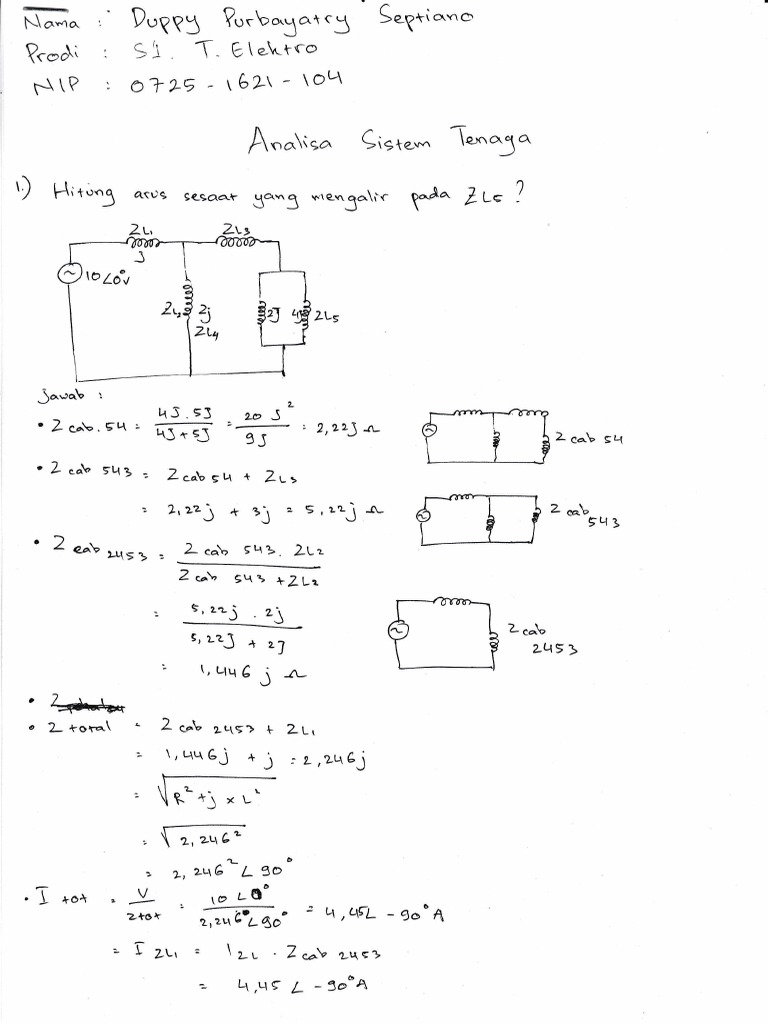 Nama : Duppy Purbayatry Septiano
Prodi : S1. T. Elektro
NIP : 0725-1621-104
Analisa Sistem Tenaga
1.) Hitung arus sesaat yang mengalir pada ZL5?
ZL1 ZL3
j
10∠0°v
ZL2 2j 2J 4J ZL5
ZL4
Jawab :
• Z cab.54 = 4J.5J / 4J+5J = 20 J² / 9J = 2,22J Ω
Z cab 54
• Z cab 543 = Z cab 54 + ZL3
= 2,22j + 3j = 5,22j Ω
Z cab 543
• Z cab 2453 = Z cab 543. ZL2 / Z cab 543 + ZL2
= 5,22j . 2j / 5,22J + 2J
= 1,446 j Ω
Z cab
2453
• Z
• Z total = Z cab 2453 + ZL1
= 1,446j + j = 2,246j
= √R² + j x L²
= √2,246²
= 2,246² ∠ 90°
• I tot = V / Ztot = 10 ∠0° / 2,246∠90° = 4,45∠-90° A
= I ZL1 = I ZL . Z cab 2453
= 4,45 ∠-90° A